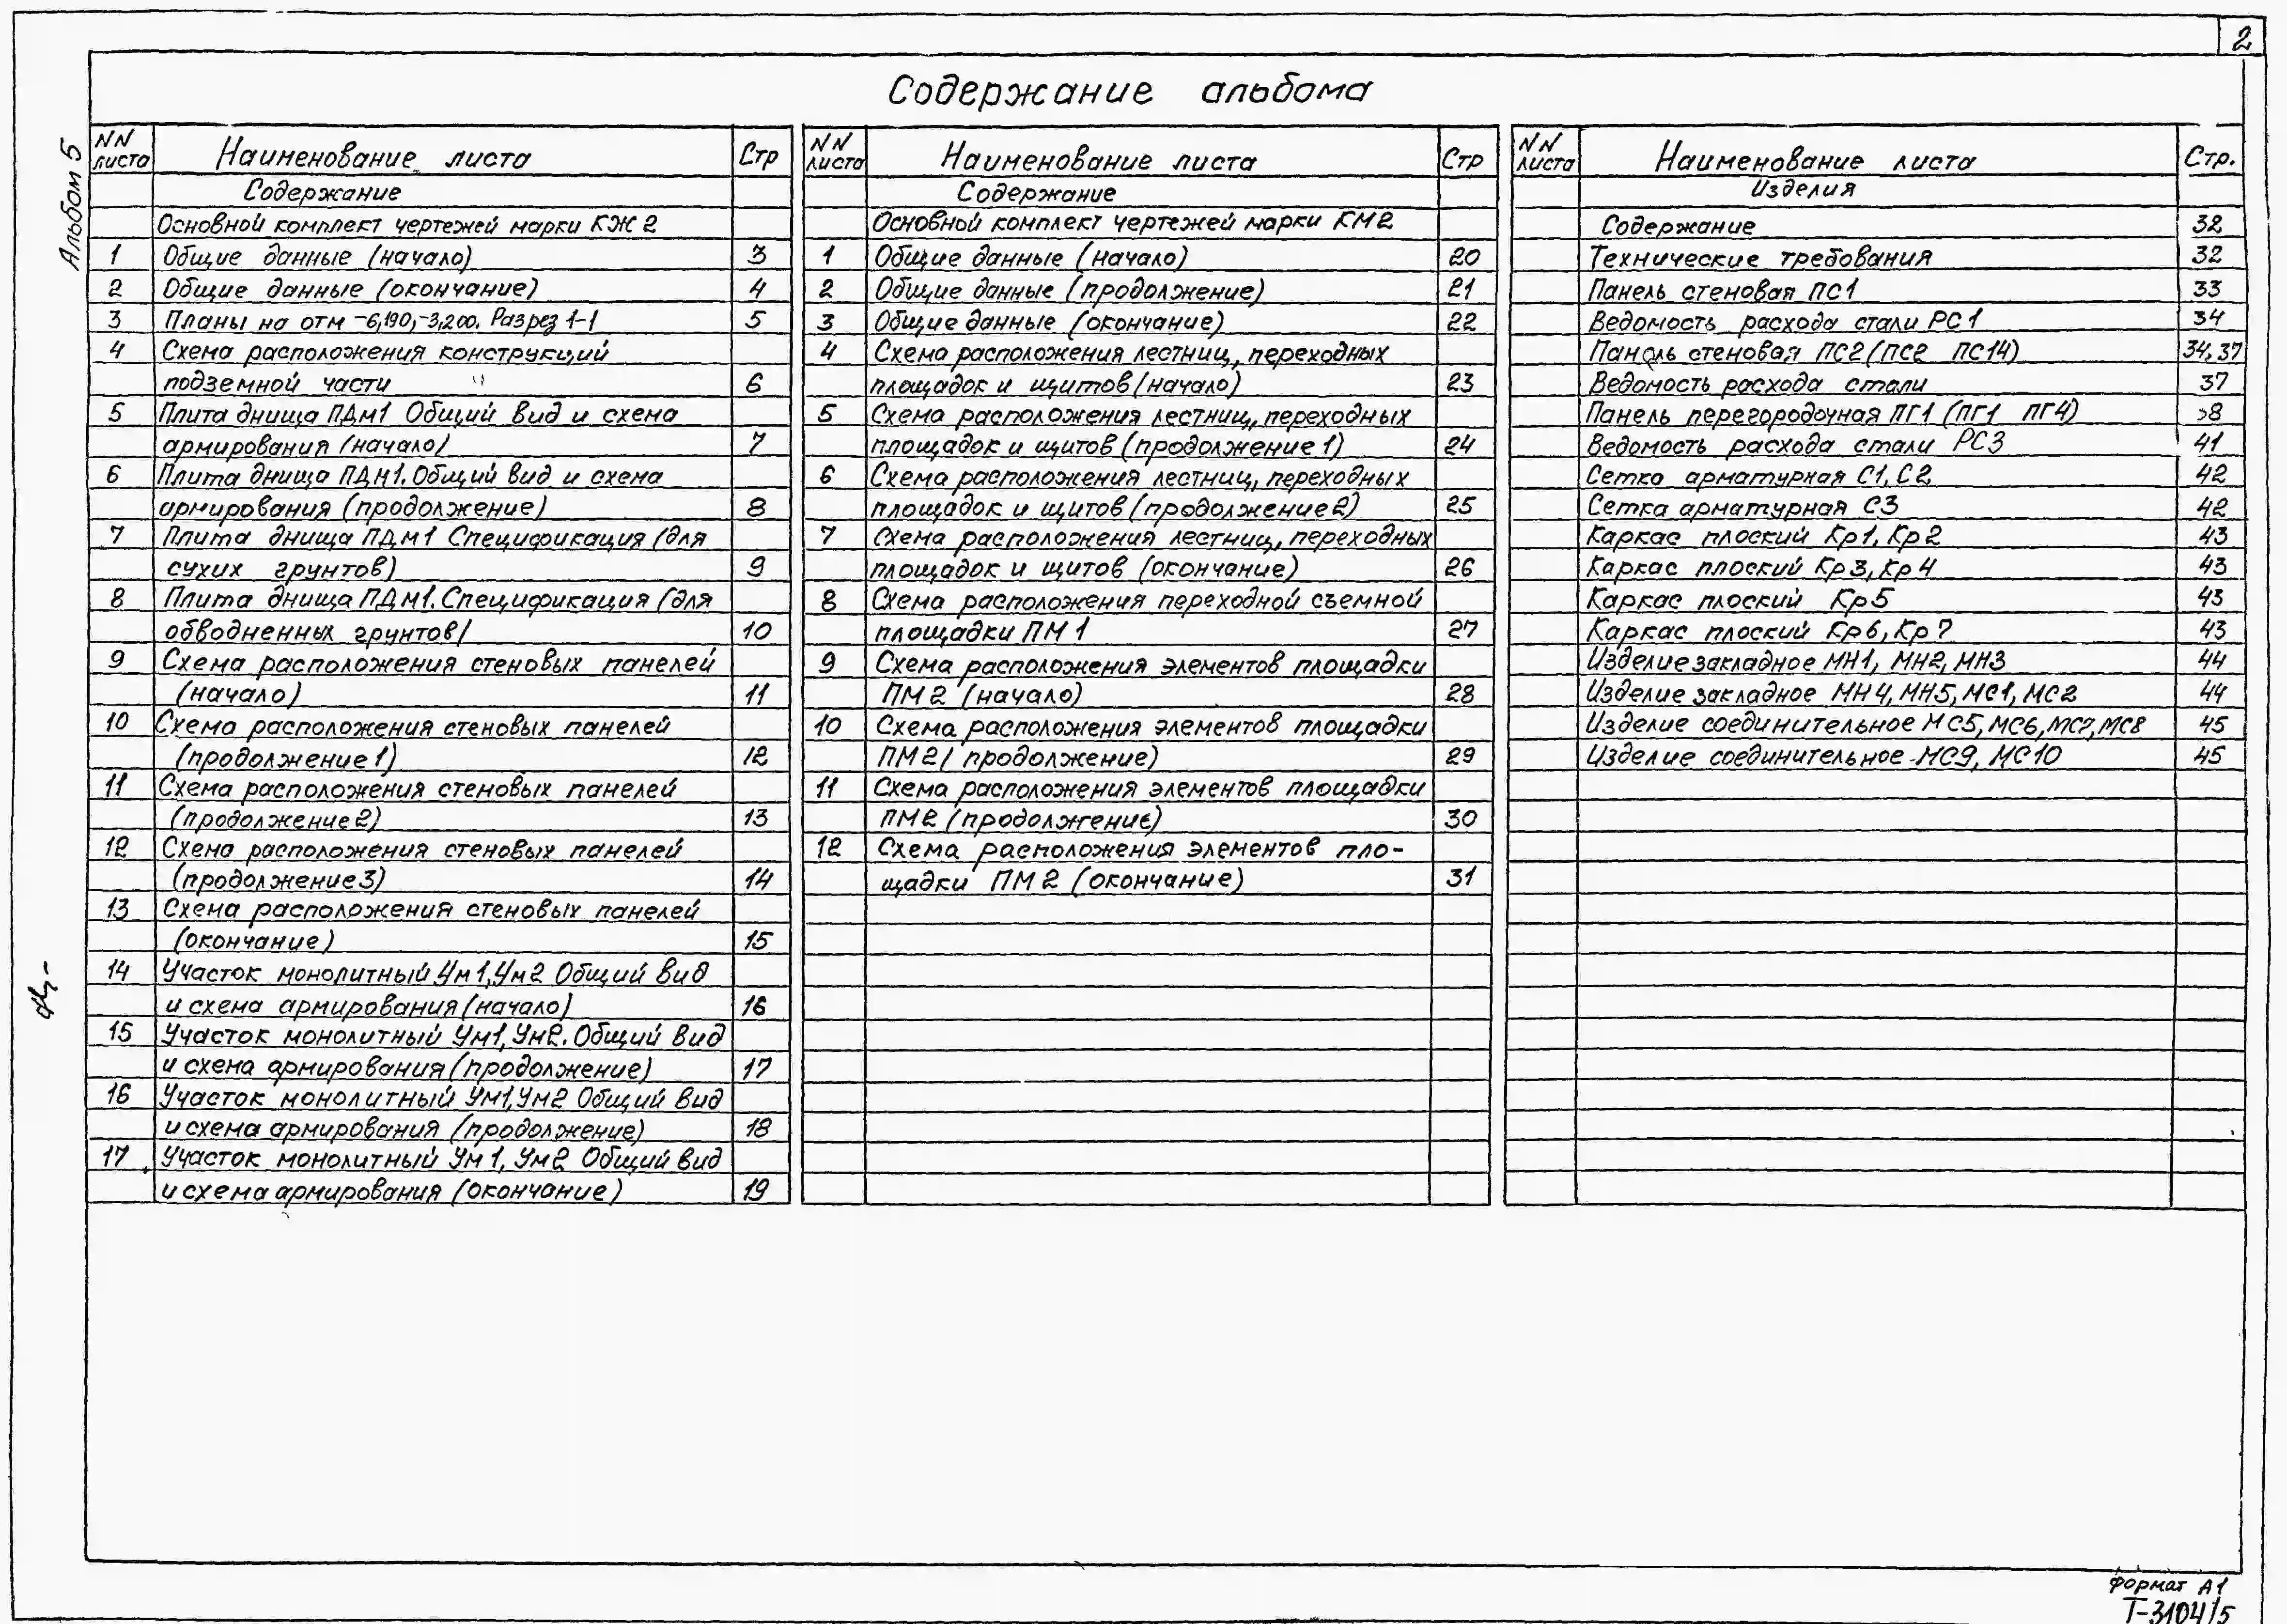 2
Содержание альбома
Альбом 5
NN листа Наименование листа Стр
Содержание
Основной комплект чертежей марки КЖ2
1 Общие данные (начало) 3
2 Общие данные (окончание) 4
3 Планы на отм -6,190,-3,200. Разрез 1-1 5
4 Схема расположения конструкций
подземной части 6
5 Плита днища ПДм1 Общий вид и схема
армирования (начало) 7
6 Плита днища ПДм1. Общий вид и схема
армирования (продолжение) 8
7 Плита днища ПДм1 Спецификация (для
сухих грунтов) 9
8 Плита днища ПДм1. Спецификация (для
обводненных грунтов) 10
9 Схема расположения стеновых панелей
(начало) 11
10 Схема расположения стеновых панелей
(продолжение 1) 12
11 Схема расположения стеновых панелей
(продолжение 2) 13
12 Схема расположения стеновых панелей
(продолжение 3) 14
13 Схема расположения стеновых панелей
(окончание) 15
14 Участок монолитный Ум1, Ум2 Общий вид
и схема армирования (начало) 16
15 Участок монолитный Ум1, Ум2. Общий вид
и схема армирования (продолжение) 17
16 Участок монолитный Ум1, Ум2 Общий вид
и схема армирования (продолжение) 18
17 Участок монолитный Ум1, Ум2 Общий вид
и схема армирования (окончание) 19
NN листа Наименование листа Стр
Содержание
Основной комплект чертежей марки КМ2
1 Общие данные (начало) 20
2 Общие данные (продолжение) 21
3 Общие данные (окончание) 22
4 Схема расположения лестниц, переходных
площадок и щитов (начало) 23
5 Схема расположения лестниц, переходных
площадок и щитов (продолжение 1) 24
6 Схема расположения лестниц, переходных
площадок и щитов (продолжение 2) 25
7 Схема расположения лестниц, переходных
площадок и щитов (окончание) 26
8 Схема расположения переходной съемной
площадки ПМ1 27
9 Схема расположения элементов площадки
ПМ2 (начало) 28
10 Схема расположения элементов площадки
ПМ2 (продолжение) 29
11 Схема расположения элементов площадки
ПМ2 (продолжение) 30
12 Схема расположения элементов пло-
щадки ПМ2 (окончание) 31
NN листа Наименование листа Стр.
Изделия
Содержание 32
Технические требования 32
Панель стеновая ПС1 33
Ведомость расхода стали РС1 34
Панель стеновая ПС2 (ПС2 ПС14) 34, 37
Ведомость расхода стали 37
Панель перегородочная ПГ1 (ПГ1 ПГ4) 38
Ведомость расхода стали РС3 41
Сетка арматурная С1, С2 42
Сетка арматурная С3 42
Каркас плоский Кр1, Кр2 43
Каркас плоский Кр3, Кр4 43
Каркас плоский Кр5 43
Каркас плоский Кр6, Кр7 43
Изделие закладное МН1, МН2, МН3 44
Изделие закладное МН4, МН5, МС1, МС2 44
Изделие соединительное МС5, МС6, МС7, МС8 45
Изделие соединительное МС9, МС10 45
формат А1
Т-3104/5